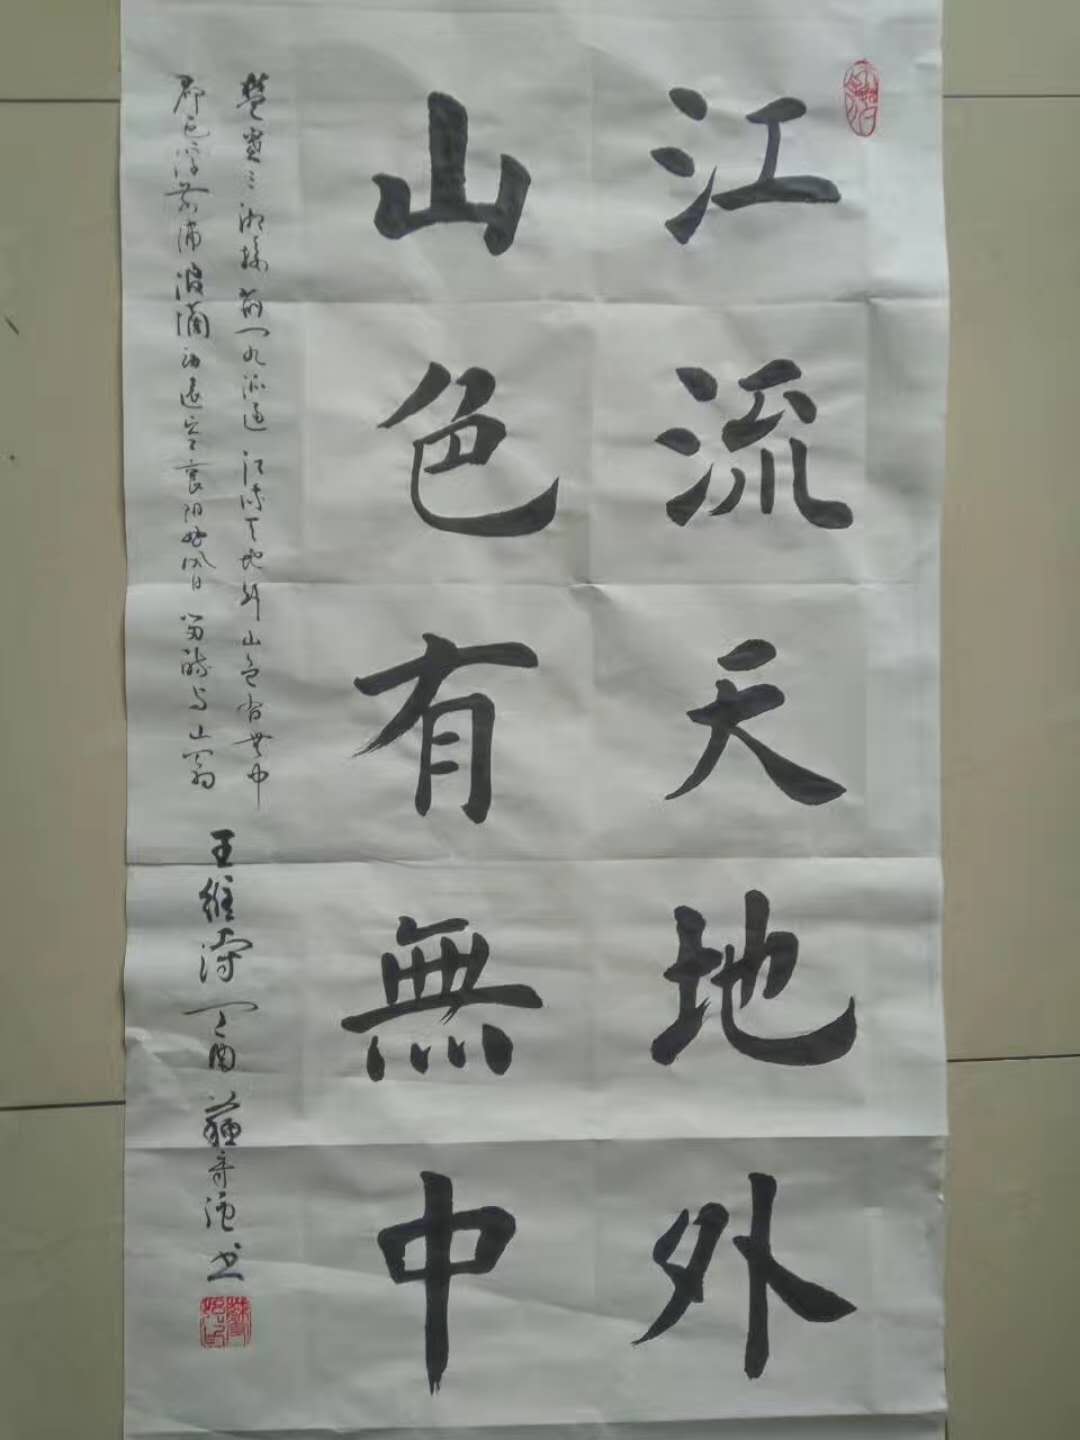 江流天地外
山色有無中
楚塞三湘接荊門九派通江流天地外山色有無中
郡邑浮前浦波瀾動遠空襄陽好風日留醉與山翁
王維詩丁酉蘇奇書